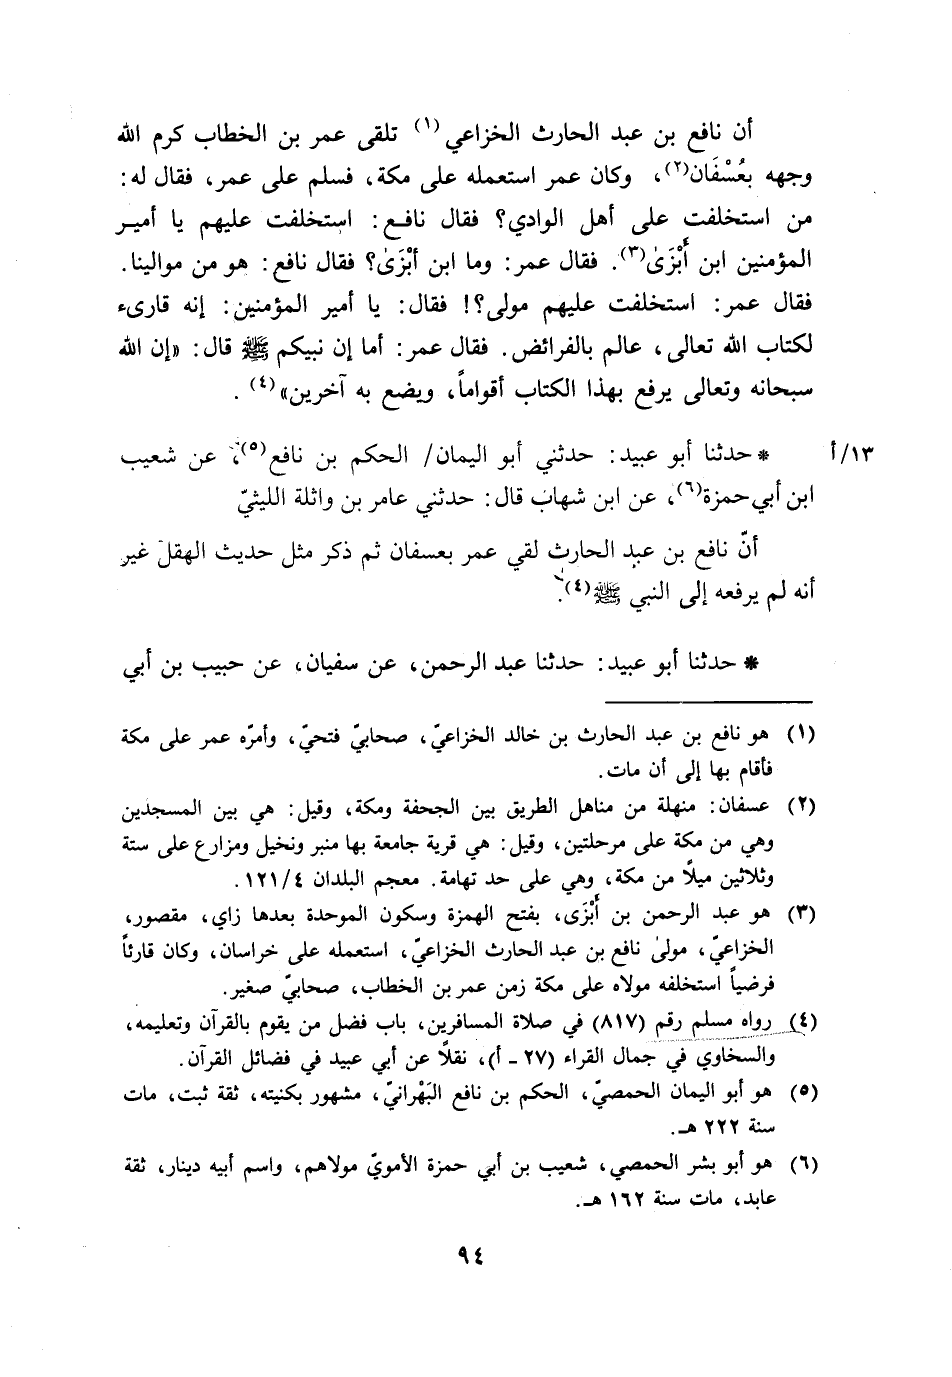 أن نافع بن عبد الحارث الخزاعي(١) تلقى عمر بن الخطاب كرم الله
وجهه بعُسْفَان(٢)، وكان عمر استعمله على مكة، فسلم على عمر، فقال له:
من استخلفت على أهل الوادي؟ فقال نافع: استخلفت عليهم يا أمير
المؤمنين ابن أَبْزَىٰ(٣). فقال عمر: وما ابن أبْزَىٰ؟ فقال نافع: هو من موالينا.
فقال عمر: استخلفت عليهم مولى؟! فقال: يا أمير المؤمنين: إنه قارىء
لكتاب الله تعالى، عالم بالفرائض. فقال عمر: أما إن نبيكم ﷺ قال: «إن الله
سبحانه وتعالى يرفع بهذا الكتاب أقواماً، ويضع به آخرين»(٤).
١٣/أ * حدثنا أبو عبيد: حدثني أبو اليمان/ الحكم بن نافع(٥)، عن شعيب
ابن أبي حمزة(٦)، عن ابن شهاب قال: حدثني عامر بن واثلة الليثيّ
أنّ نافع بن عبد الحارث لقي عمر بعسفان ثم ذكر مثل حديث الهقل غير
أنه لم يرفعه إلى النبي ﷺ(٤).
* حدثنا أبو عبيد: حدثنا عبد الرحمن، عن سفيان، عن حبيب بن أبي
(١) هو نافع بن عبد الحارث بن خالد الخزاعيّ، صحابيّ فتحيّ، وأمرّه عمر على مكة
فأقام بها إلى أن مات.
(٢) عسفان: منهلة من مناهل الطريق بين الجحفة ومكة، وقيل: هي بين المسجدين
وهي من مكة على مرحلتين، وقيل: هي قرية جامعة بها منبر ونخيل ومزارع على ستة
وثلاثين ميلاً من مكة، وهي على حد تهامة. معجم البلدان ١٢١/٤.
(٣) هو عبد الرحمن بن أَبْزَى، بفتح الهمزة وسكون الموحدة بعدها زاي، مقصور،
الخزاعيّ، مولىٰ نافع بن عبد الحارث الخزاعيّ، استعمله على خراسان، وكان قارئاً
فرضياً استخلفه مولاه على مكة زمن عمر بن الخطاب، صحابيّ صغير.
(٤) رواه مسلم رقم (٨١٧) في صلاة المسافرين، باب فضل من يقوم بالقرآن وتعليمه،
والسخاوي في جمال القراء (٢٧ - أ)، نقلاً عن أبي عبيد في فضائل القرآن.
(٥) هو أبو اليمان الحمصيّ، الحكم بن نافع البَهْرانيّ، مشهور بكنيته، ثقة ثبت، مات
سنة ٢٢٢ هـ.
(٦) هو أبو بشر الحمصي، شعيب بن أبي حمزة الأمويّ مولاهم، واسم أبيه دينار، ثقة
عابد، مات سنة ١٦٢ هـ.
٩٤